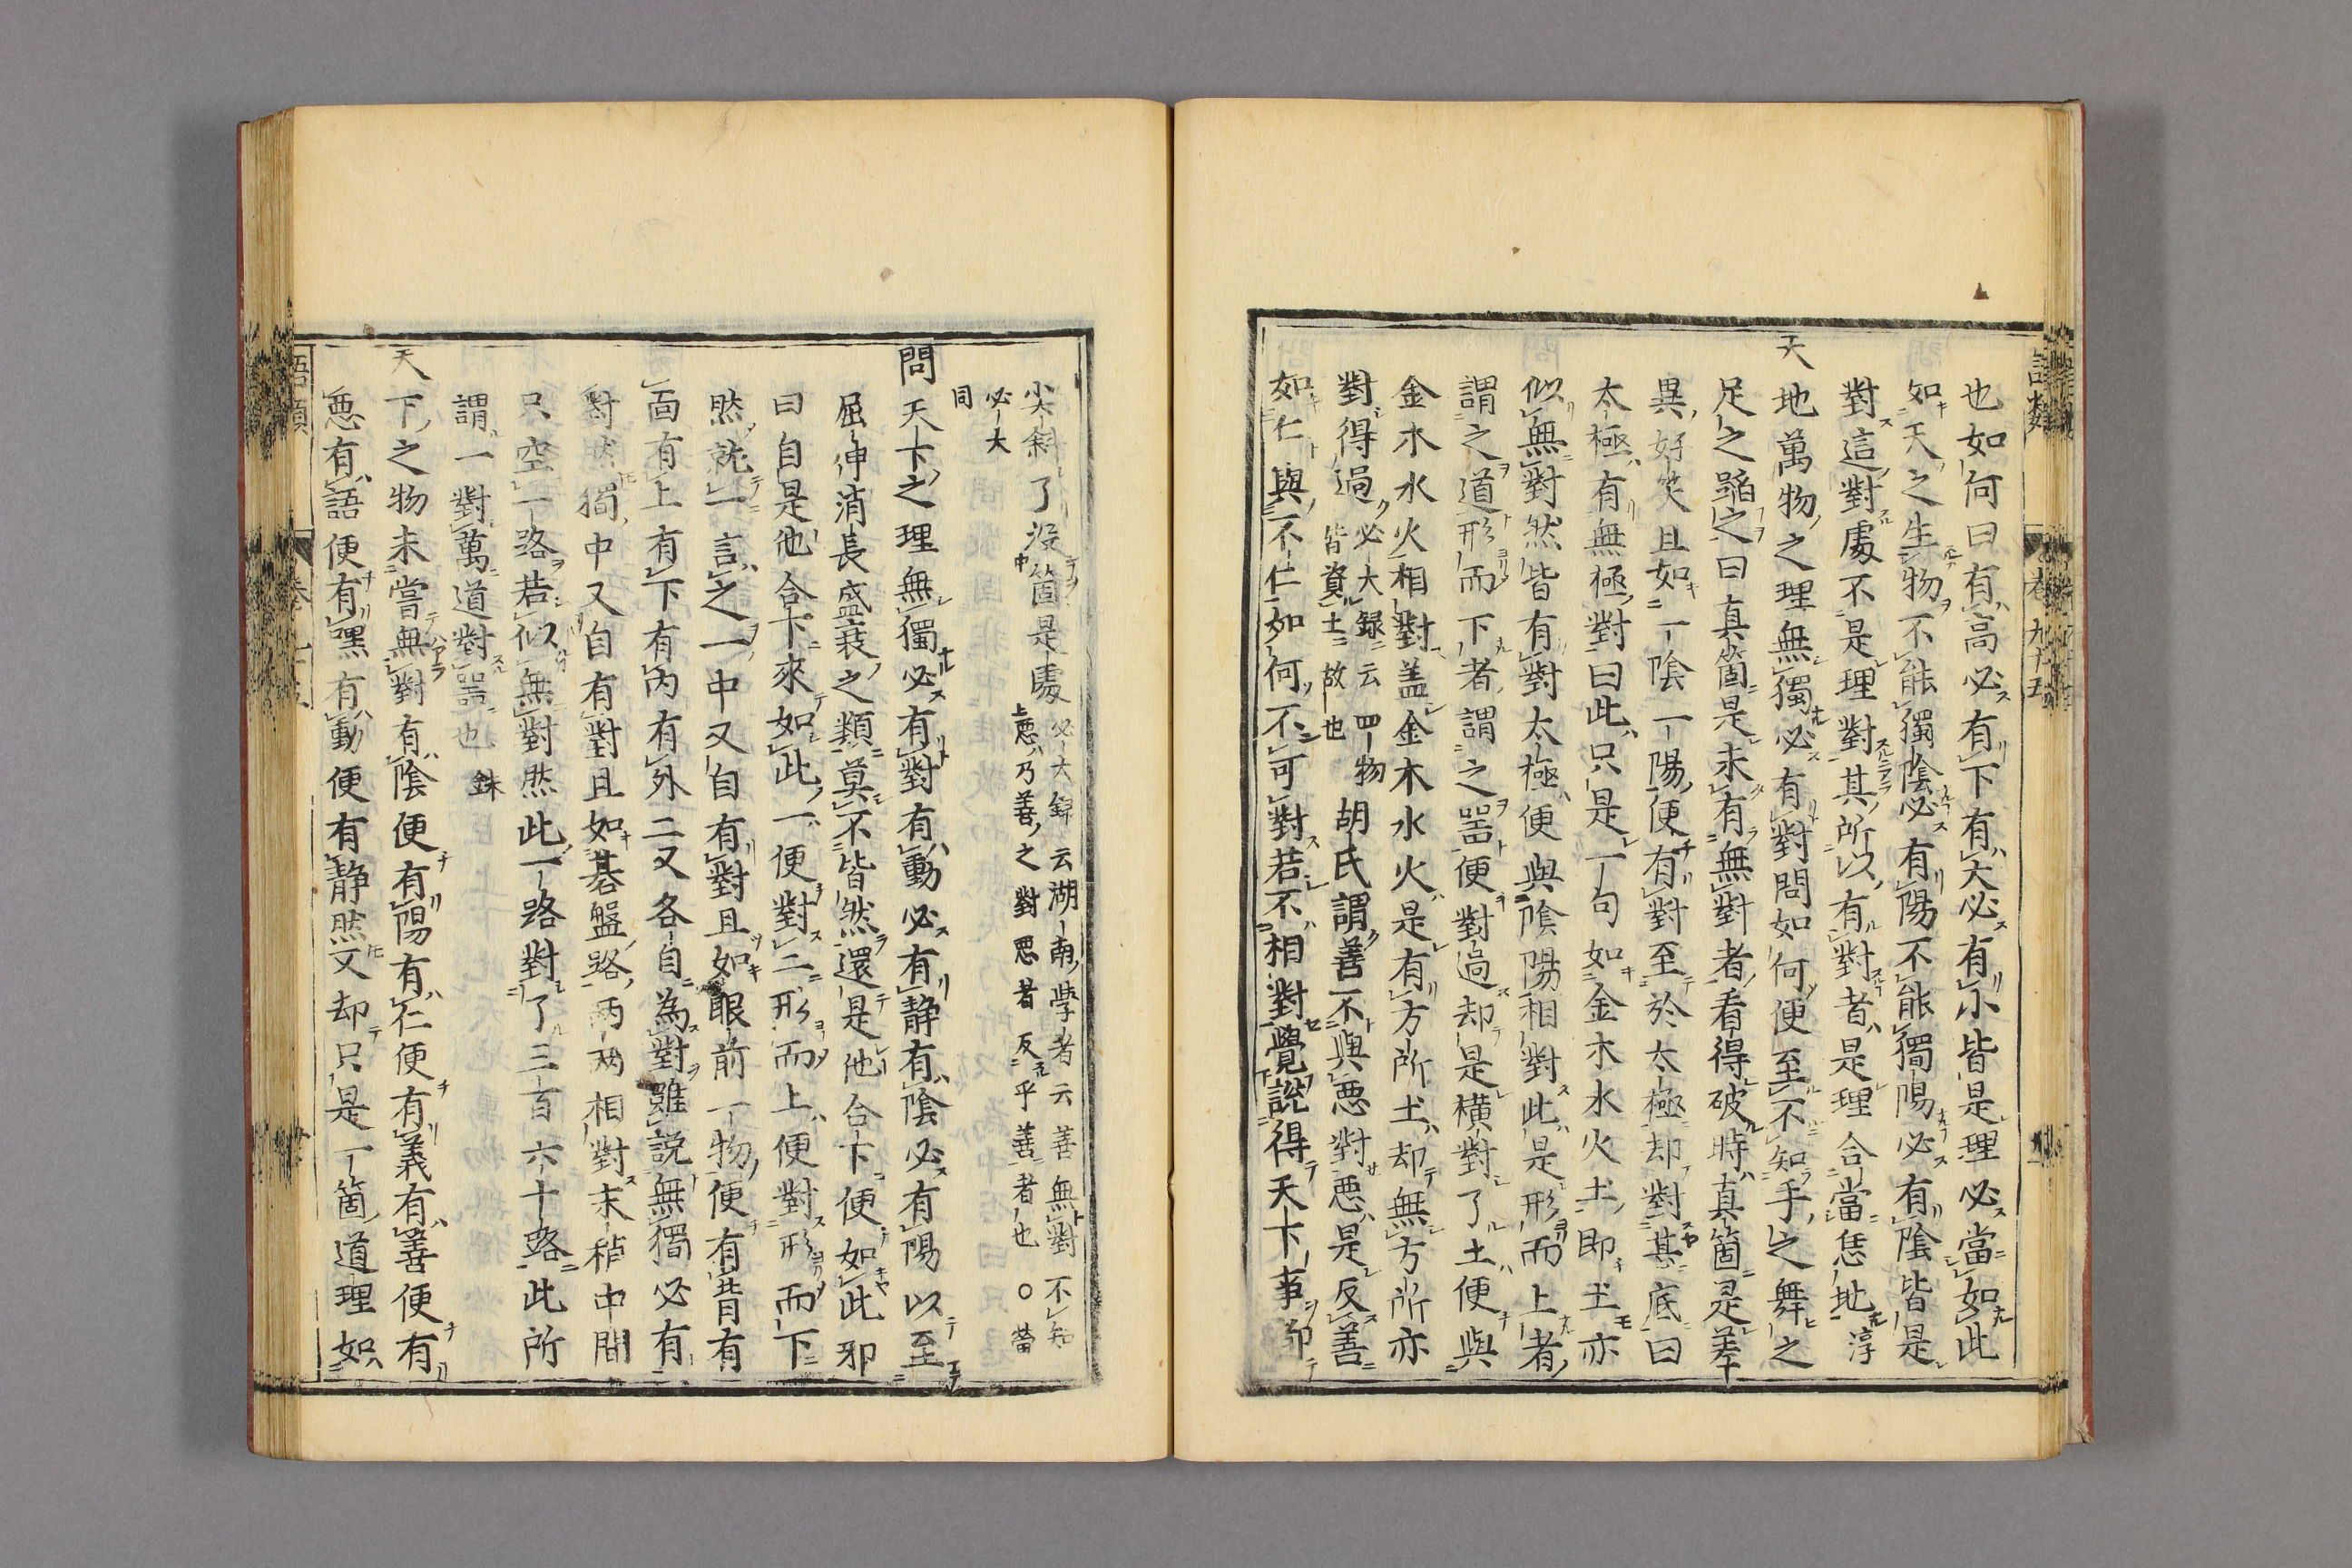 也如何曰有高必有下有大必有小皆是理必當如此
如天之生物不能獨陰必有陽不能獨陽必有陰皆是
對這對處不是理對其所以有對者是理合當恁地淳
天地萬物之理無獨必有對問如何便至不知手之舞之
足之蹈之曰真箇是未有無對者看得破時真箇是差
異好笑且如一陰一陽便有對至於太極却對甚底曰
太極有無極對曰此只是一句如金木水火土即土亦
似無對然皆有對太極便與陰陽相對此是形而上者
謂之道形而下者謂之器便對過却是橫對了土便與
金木水火相對盖金木水火是有方所土却無方所亦
對得過必大録云四物皆資土故也胡氏謂善不與悪對悪是反善
如仁與不仁如何不可對若不相對覺說得天下事都
尖斜了没箇是處必大録云湖南學者云善無對不知
悪乃善之對悪者反乎善者也○䈑
必大同
問天下之理無獨必有對有動必有静有陰必有陽以至
屈伸消長盛衰之類莫不皆然還是他合下便如此邪
曰自是他合下來如此一便對二形而上便對形而下
然就一言之一中又自有對且如眼前一物便有背有
面有上有下有内有外二又各自為對雖説無獨必有
對然獨中又自有對且如碁盤路两两相對末稍中間
只空一路若似無對然此一路對了三百六十路此所
謂一對萬道對器也 銖
天下之物未嘗無對有陰便有陽有仁便有義有善便有
悪有語便有嘿有動便有静然又却只是一箇道理如